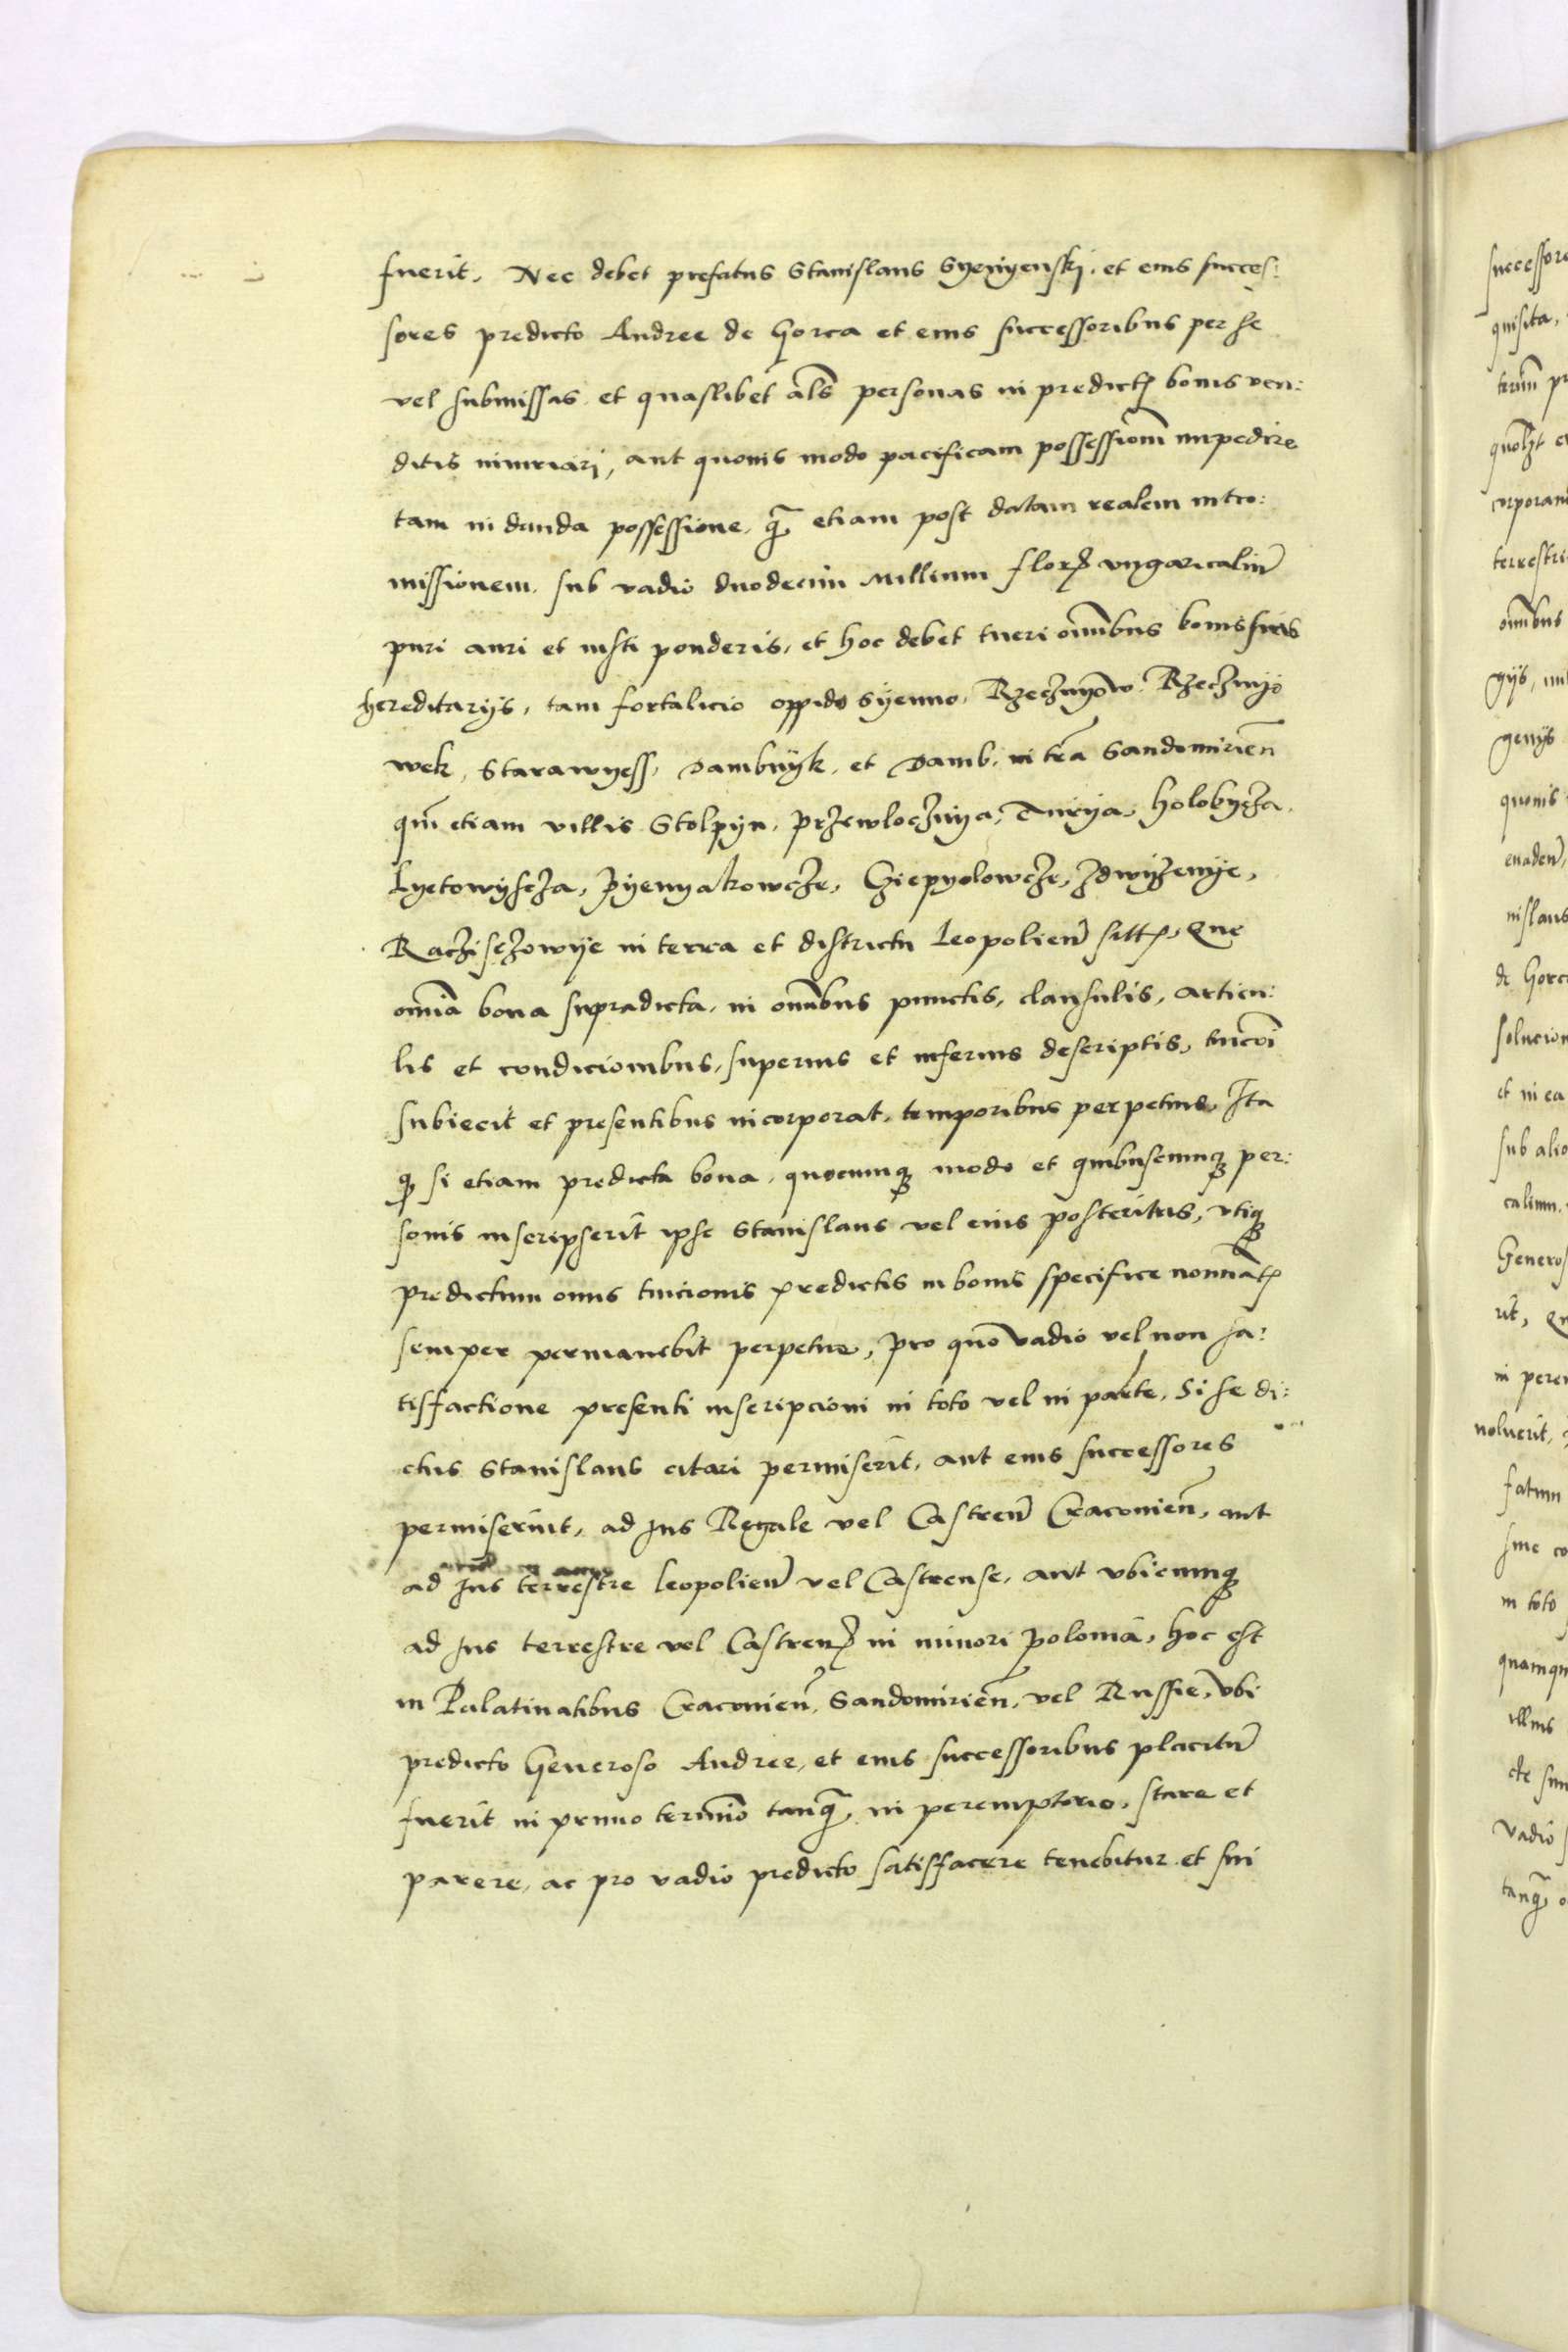 fuerit, Nec debet prefatus Stanislaus Syenyenskj, et eius succes:
sores predicto Andree de Gorca et eius successoribus per se
vel submissas et quaslibet als̄ personas in predict̄ bonis ven:
ditis iniuriari, aut quouis modo pacificam possessionē impedire
tam in danda possessione, q̄ etiam post datam realem intro:
missionem, sub vadio duodecim Millium flor̄ vngaricaliū
puri auri et iusti ponderis, et hoc debet tueri om̄ibus bonis suis
hereditarijs, tam fortalicio oppido Syenno, Rzecznyow Rzecznyo
wek, Starawyess, Dambnyk, et Damb, in tr̄a Sandomirien̄
qm̄ etiam villis Stolpyn, przewlocznya, Turya, Holobycza,
Lyetowyscza, pyenyakowcze, Cziepyelowcze, zdwyzenye,
Raczisczowye in terra et districtu Leopolien̄ sitt̄, Que
om̄ia bona supradicta, in om̄ibus punctis, clausulis, articu:
lis et condicionibus, superius et inferius descriptis, tuicōi
subiecit et presentibus incorporat, temporibus perpetuis, Ita
q̄ si etiam predicta bona, quocunq̢ modo et quibuscunq̢ per:
sonis inscripserit ipse Stanislaus vel eius posteritas, vtiq̢
predictum onus tuicionis predictis in bonis specifice nominat̄
semper permanebit perpetue, pro quo vadio vel non sa:
tisfactione presenti inscripcioni in toto vel in parte, Si se di:
ctus Stanislaus citari permiserit, aut eius successores
permiserint, ad Jus Regale vel Castren̄ Cracouien̄, aut
ad Jus terrestre Leopolien̄ vel Castrense, aut vbicunq̢
ad Jus terrestre vel Castren̄ in minori polonia, hoc est
in Palatinatibus Cracouien̄, Sandomirien̄, vel Russie, vbi
predicto Generoso Andree, et eius successoribus placitū
fuerit in primo termīo tanq̄, in peremptorio, stare et
parere, ac pro vadio predicto satisfacere tenebitur et sui